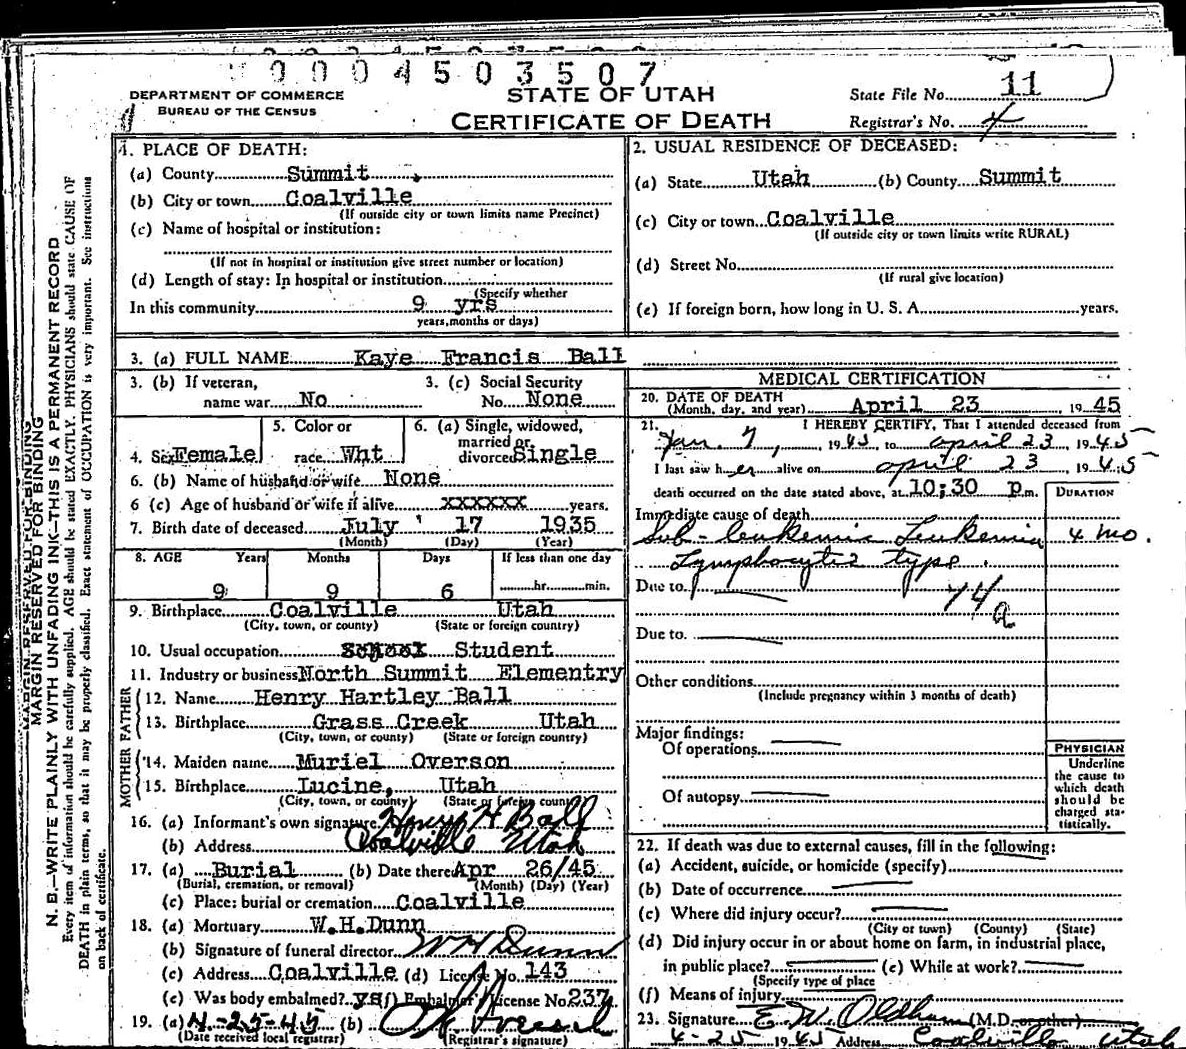 0004503507
DEPARTMENT OF COMMERCE
BUREAU OF THE CENSUS
STATE OF UTAH
CERTIFICATE OF DEATH
State File No. 11
Registrar's No. 4
MARGIN RESERVED FOR BINDING
N. B.—WRITE PLAINLY WITH UNFADING INK—THIS IS A PERMANENT RECORD
Every item of information should be carefully supplied. AGE should be stated EXACTLY. PHYSICIANS should state CAUSE OF
DEATH in plain terms, so that it may be properly classified. Exact statement of OCCUPATION is very important. See instructions
on back of certificate.
1. PLACE OF DEATH:
(a) County Summit
(b) City or town Coalville
(If outside city or town limits name Precinct)
(c) Name of hospital or institution:
(If not in hospital or institution give street number or location)
(d) Length of stay: In hospital or institution
(Specify whether
In this community 9 yrs
years, months or days)
2. USUAL RESIDENCE OF DECEASED:
(a) State Utah (b) County Summit
(c) City or town Coalville
(If outside city or town limits write RURAL)
(d) Street No.
(If rural give location)
(e) If foreign born, how long in U. S. A. years.
3. (a) FULL NAME Kaye Francis Ball
3. (b) If veteran, name war No
3. (c) Social Security No. None
4. Sex Female
5. Color or race Wht
6. (a) Single, widowed, married or divorced Single
6. (b) Name of husband or wife None
6 (c) Age of husband or wife if alive xxxxxx years.
7. Birth date of deceased July 17 1935
(Month) (Day) (Year)
8. AGE Years Months Days If less than one day
9 9 6 hr. min.
9. Birthplace Coalville Utah
(City, town, or county) (State or foreign country)
10. Usual occupation Student
11. Industry or business North Summit Elementry
FATHER
12. Name Henry Hartley Ball
13. Birthplace Grass Creek Utah
(City, town, or county) (State or foreign country)
MOTHER
14. Maiden name Muriel Overson
15. Birthplace Lucine, Utah
(City, town, or county) (State or foreign country)
16. (a) Informant's own signature Henry H Ball
(b) Address Coalville Utah
17. (a) Burial (b) Date thereof Apr 26/45
(Burial, cremation, or removal) (Month) (Day) (Year)
(c) Place: burial or cremation Coalville
18. (a) Mortuary W.H.Dunn
(b) Signature of funeral director W H Dunn
(c) Address Coalville (d) License No. 143
(e) Was body embalmed? yes (f) Embalmer License No. 237
19. (a) 4-25-45 (b)
(Date received local registrar) (Registrar's signature)
MEDICAL CERTIFICATION
20. DATE OF DEATH
(Month, day, and year) April 23 1945
21. I HEREBY CERTIFY, That I attended deceased from
Jan. 7, 1945 to april 23 1945
I last saw her alive on april 23 1945
death occurred on the date stated above, at 10:30 p.m.
DURATION
Immediate cause of death
Sub-leukemic Leukemia 4 mo.
Lymphocytic type.
Due to 74a
Due to
Other conditions
(Include pregnancy within 3 months of death)
Major findings:
Of operations
Of autopsy
PHYSICIAN
Underline
the cause to
which death
should be
charged sta-
tistically.
22. If death was due to external causes, fill in the following:
(a) Accident, suicide, or homicide (specify)
(b) Date of occurrence
(c) Where did injury occur?
(City or town) (County) (State)
(d) Did injury occur in or about home on farm, in industrial place,
in public place? (e) While at work?
(Specify type of place
(f) Means of injury
23. Signature E. W. Oldham (M.D. or other)
4-25 1945 Address Coalville Utah